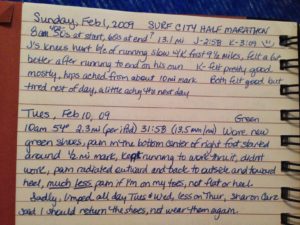 Sunday, Feb 1, 2009 SURF CITY HALF MARATHON
8am 50s at start, 60s at end? 13.1 mi J-2:58 K-3:09
J's knees hurt b/c of running slow 4K first 9½ miles, felt a lot
better after running to end on his own K- felt pretty good
mostly, hips ached from about 10mi mark. Both felt good but
tired rest of day, a little achy the next day
Tues, Feb 10, 09 Green
10am 54° 2.3 mi (per iPod) 31:58 (13.5 min/mi) Wore new
green shoes, pain in the bottom center of right foot started
around ½ mi mark, kept running to work thru it, didn't
work, pain radiated outward and back to outside and toward
heel, much less pain if I'm on my toes, not flat or heel.
Sadly, limped all day Tues & Wed, less on Thur, Sharon
said I should return the shoes, not wear them again.